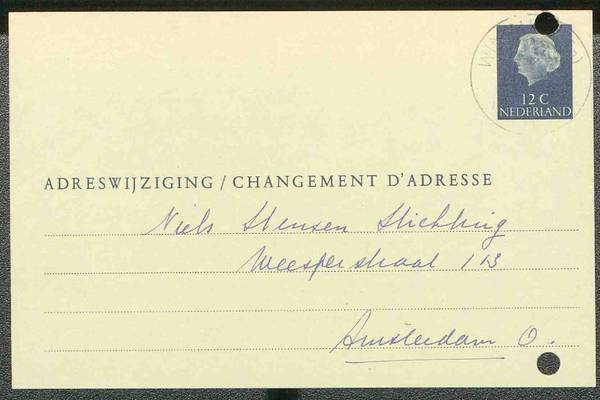 12 C
NEDERLAND
ADRESWIJZIGING / CHANGEMENT D'ADRESSE
Niels Stensen Stichting
Weesperstraat 113
Amsterdam O.